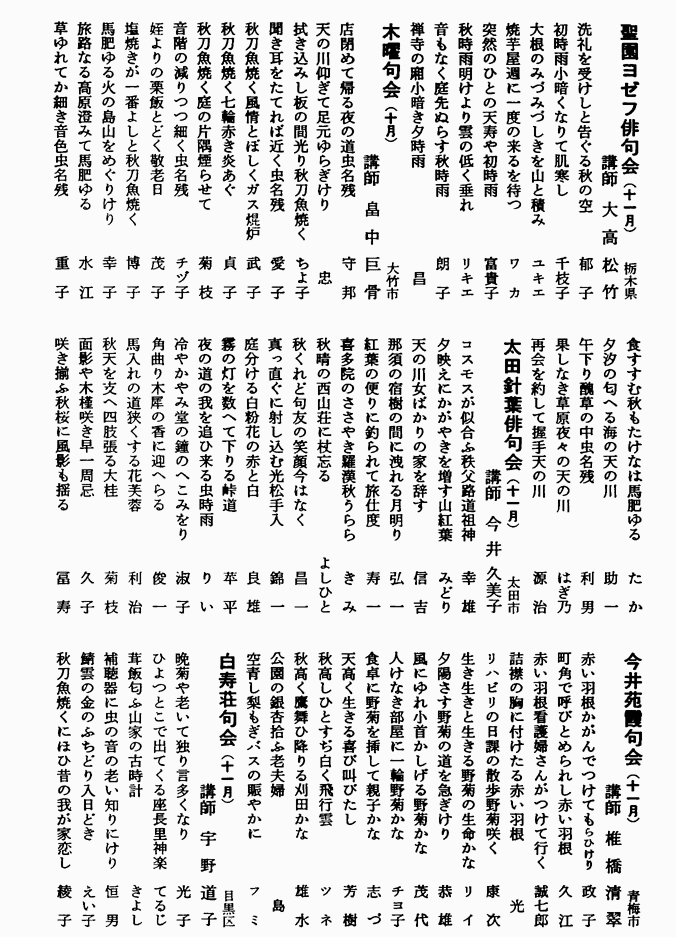 聖園ヨゼフ俳句会（十一月）
栃木県
講師 大高松竹
洗礼を受けしと告ぐる秋の空 郁子
初時雨小暗くなりて肌寒し 千枝子
大根のみづみづしきを山と積み ユキエ
焼芋屋週に一度の来るを待つ ワカ
突然のひとの天寿や初時雨 富貴子
秋時雨明けより雲の低く垂れ リキエ
音もなく庭先ぬらす秋時雨 朗子
禅寺の廂小暗き夕時雨 昌
木曜句会（十月）
大竹市
講師 畠中巨骨
店閉めて帰る夜の道虫名残 守邦
天の川仰ぎて足元ゆらぎけり 忠
拭き込みし板の間光り秋刀魚焼く ちよ子
聞き耳をたてれば近く虫名残 愛子
秋刀魚焼く風情とぼしくガス焜炉 武子
秋刀魚焼く七輪赤き炎あぐ 貞子
秋刀魚焼く庭の片隅煙らせて 菊枝
音階の減りつつ細く虫名残 チヅ子
姪よりの栗飯とどく敬老日 茂子
塩焼きが一番よしと秋刀魚焼く 博子
馬肥ゆる火の島山をめぐりけり 幸子
旅路なる高原澄みて馬肥ゆる 水江
草ゆれてか細き音色虫名残 重子
食すすむ秋もたけなは馬肥ゆる たか
夕汐の匂へる海の天の川 助一
午下り醜草の中虫名残 利男
果しなき草原夜々の天の川 はぎ乃
再会を約して握手天の川 源治
太田針葉俳句会（十一月）
太田市
講師 今井久美子
コスモスが似合ふ秩父路道祖神 幸雄
夕映えにかがやきを増す山紅葉 みどり
天の川女ばかりの家を辞す 信吉
那須の宿樹の間に洩れる月明り 弘一
紅葉の便りに釣られて旅仕度 寿一
喜多院のささやき羅漢秋うらら きみ
秋晴の西山荘に杖忘る よしひと
秋くれど句友の笑顔今はなく 昌一
真っ直ぐに射し込む光松手入 錦一
庭分ける白粉花の赤と白 良雄
霧の灯を数へて下りる峠道 苹平
夜の道の我を追ひ来る虫時雨 りい
冷やかやみ堂の鐘のへこみをり 淑子
角曲り木犀の香に迎へらる 俊一
馬入れの道狭くする花芙蓉 利治
秋天を支へ四肢張る大桂 菊枝
面影や木槿咲き早一周忌 久子
咲き揃ふ秋桜に風影も揺る 冨寿
今井苑霞句会（十一月）
青梅市
講師 椎橋清翠
赤い羽根かがんでつけてもらひけり 政子
町角で呼びとめられし赤い羽根 久江
赤い羽根看護婦さんがつけて行く 誠七郎
詰襟の胸に付けたる赤い羽根 光
リハビリの日課の散歩野菊咲く 康次
生き生きと生きる野菊の生命かな リイ
夕陽さす野菊の道を急ぎけり 恭雄
風にゆれ小首かしげる野菊かな 茂代
人けなき部屋に一輪野菊かな チヨ子
食卓に野菊を挿して親子かな 志づ
天高く生きる喜び叫びたし 芳樹
秋高しひとすぢ白く飛行雲 ツネ
秋高く鷹舞ひ降りる刈田かな 雄水
公園の銀杏拾ふ老夫婦 島
空青し梨もぎバスの賑やかに フミ
白寿荘句会（十一月）
目黒区
講師 宇野道子
晩菊や老いて独り言多くなり 光子
ひよつとこで出てくる座長里神楽 てるじ
茸飯匂ふ山家の古時計 きよし
補聴器に虫の音の老い知りにけり 恒男
鯖雲の金のふちどり入日どき えい子
秋刀魚焼くにほひ昔の我が家恋し 綾子